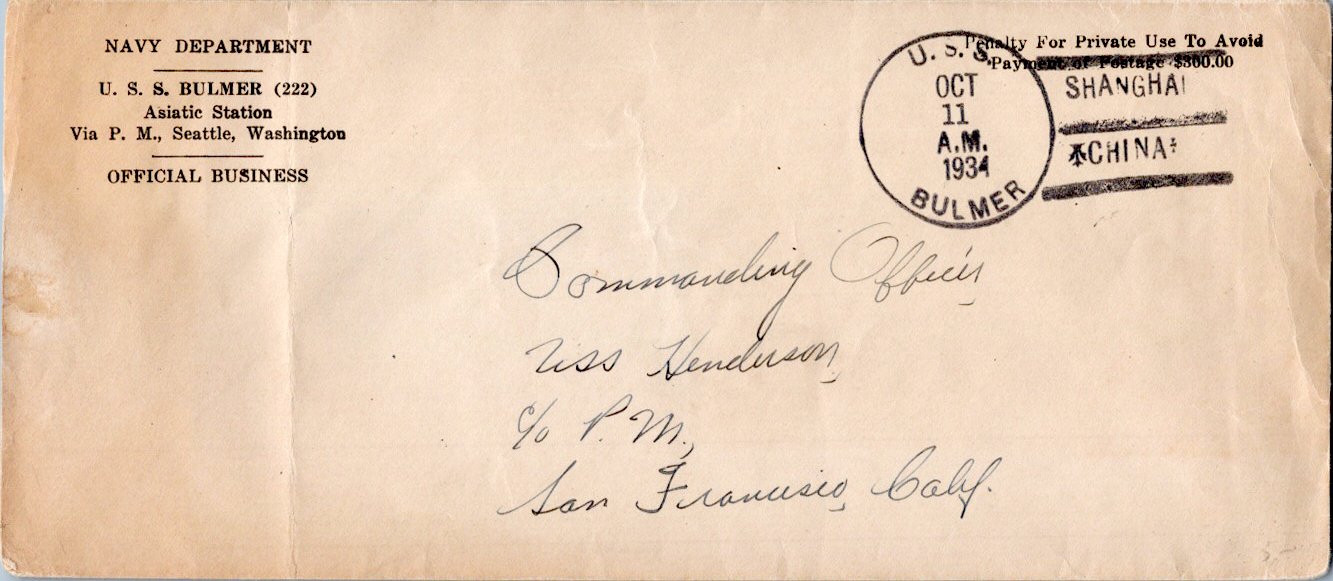 NAVY DEPARTMENT
U. S. S. BULMER (222)
Asiatic Station
Via P. M., Seattle, Washington
OFFICIAL BUSINESS
Penalty For Private Use To Avoid
Payment of Postage $300.00
U. S. S.
OCT
11
A.M.
1934
BULMER
SHANGHAI
CHINA
Commanding Officer,
USS Henderson,
c/o P. M.,
San Francisco, Calif.